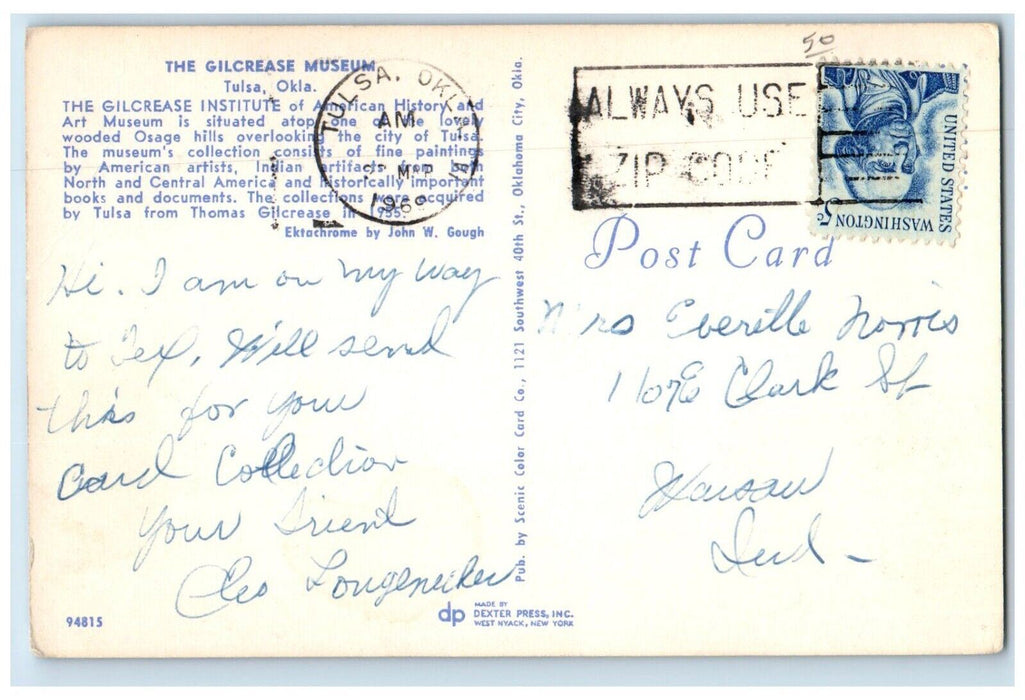 THE GILCREASE MUSEUM
Tulsa, Okla.
THE GILCREASE INSTITUTE of American History and
Art Museum is situated atop one of the lovely
wooded Osage hills overlooking the city of Tulsa.
The museum's collection consists of fine paintings
by American artists, Indian artifacts from both
North and Central America and historically important
books and documents. The collections were acquired
by Tulsa from Thomas Gilcrease in 1955.
Ektachrome by John W. Gough
Hi. I am on my way
to Tex, Will send
this for your
Card Collection
Your Friend
Cleo Longenecker
94815
Pub. by Scenic Color Card Co., 1121 Southwest 40th St., Oklahoma City, Okla.
dp MADE BY
DEXTER PRESS, INC.
WEST NYACK, NEW YORK
TULSA, OKLA
AM
SEP
1969
50
ALWAYS USE
ZIP CODE
UNITED STATES
WASHINGTON 5c
Post Card
Mrs Everille Norris
Clark St
Warsaw
Ind -